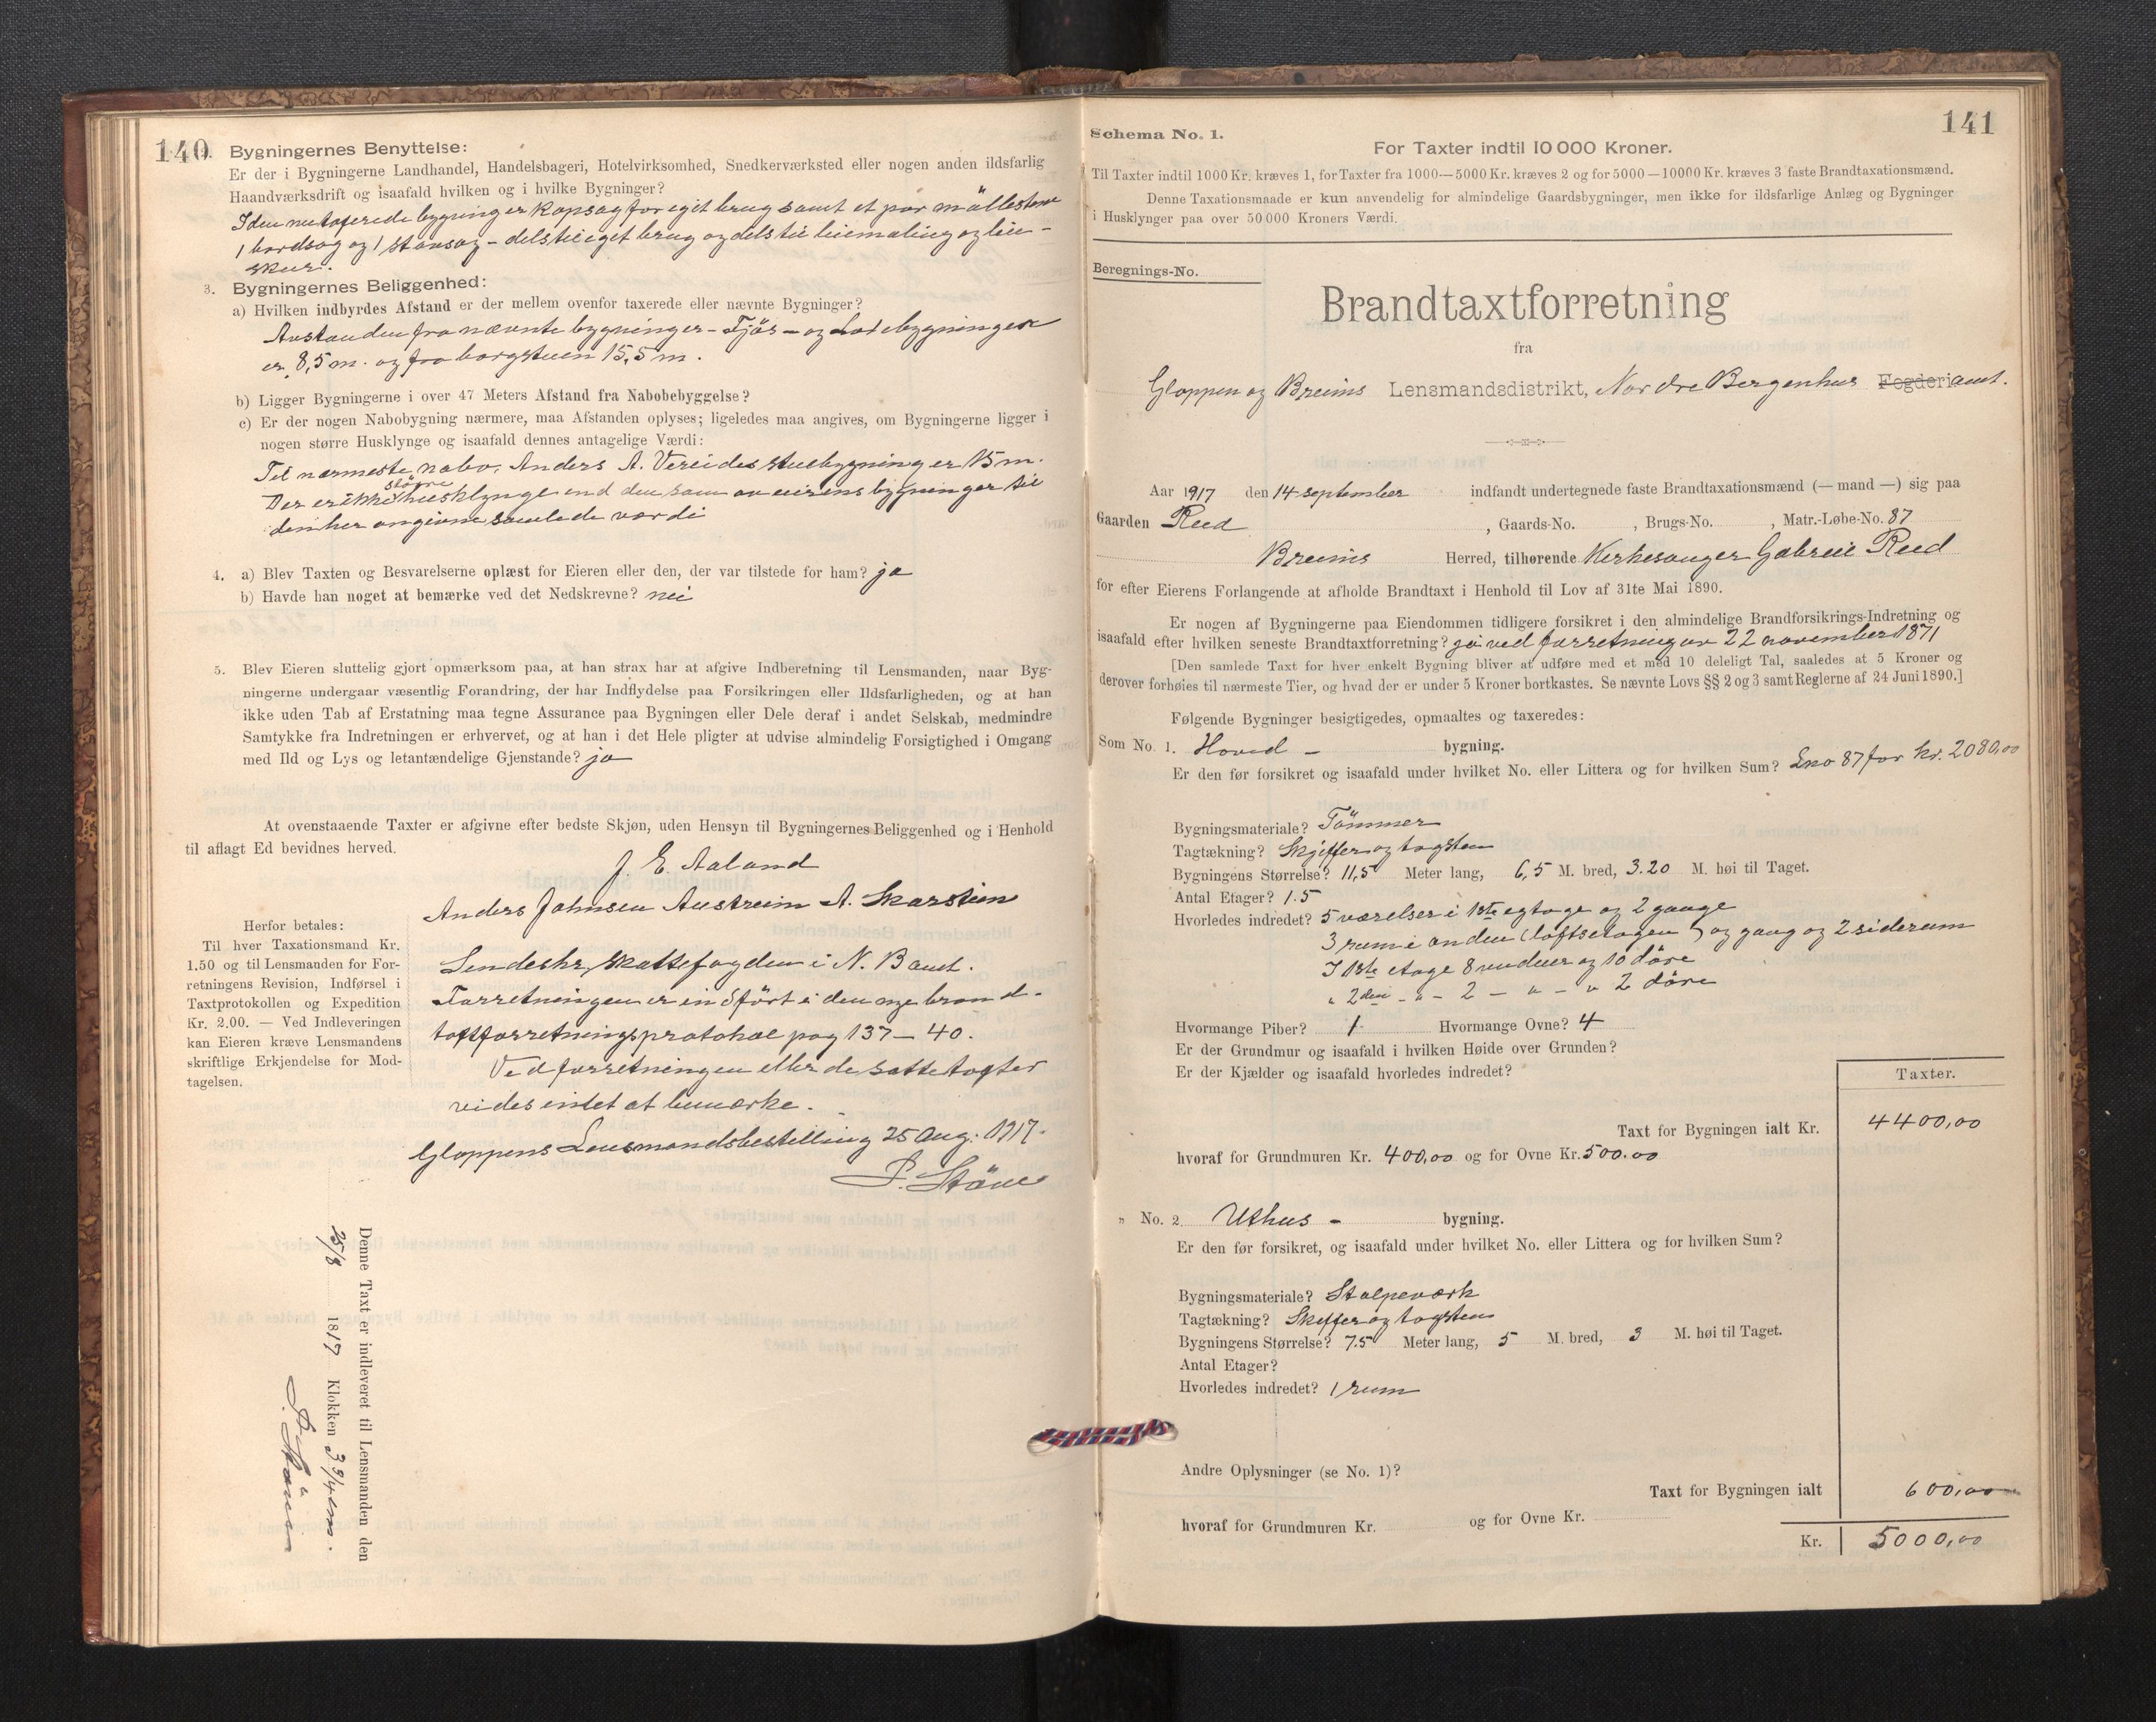 140.
Bygningernes Benyttelse:
Er der i Bygningerne Landhandel, Handelsbageri, Hotelvirksomhed, Snedkerværksted eller nogen anden ildsfarlig
Haandværksdrift og isaafald hvilken og i hvilke Bygninger?
I den nu taxerede bygning er Kapsag for eget brug samt et par møllestene
1 bordsag og 1 stavsag - dels til eget brug og dels til leiemaling og leie-
skur.
3. Bygningernes Beliggenhed:
a) Hvilken indbyrdes Afstand er der mellem ovenfor taxerede eller nævnte Bygninger?
Avstanden fra nævnte bygninger - Fjös - og Ladebygningen
er 8,5 m. og fra borgstuen 15,5 m.
b) Ligger Bygningerne i over 47 Meters Afstand fra Nabobebyggelse?
c) Er der nogen Nabobygning nærmere, maa Afstanden oplyses; ligeledes maa angives, om Bygningerne ligger i
nogen større Husklynge og isaafald dennes antagelige Værdi:
Til nærmeste nabo, Anders A. Vereides stuebygning er 15 m.
Der er ikke större husklynge end den som av eierens bygninger til
den her angivne samlede værdi
4. a) Blev Taxten og Besvarelserne oplæst for Eieren eller den, der var tilstede for ham? ja
b) Havde han noget at bemærke ved det Nedskrevne? nei
5. Blev Eieren sluttelig gjort opmærksom paa, at han strax har at afgive Indberetning til Lensmanden, naar Byg-
ningerne undergaar væsentlig Forandring, der har Indflydelse paa Forsikringen eller Ildsfarligheden, og at han
ikke uden Tab af Erstatning maa tegne Assurance paa Bygningen eller Dele deraf i andet Selskab, medmindre
Samtykke fra Indretningen er erhvervet, og at han i det Hele pligter at udvise almindelig Forsigtighed i Omgang
med Ild og Lys og letantændelige Gjenstande? ja
At ovenstaaende Taxter er afgivne efter bedste Skjøn, uden Hensyn til Bygningernes Beliggenhed og i Henhold
til aflagt Ed bevidnes herved.
J. E. Aaland
Anders Johnsen Austreim A. Skarstein
Herfor betales:
Til hver Taxationsmand Kr.
1.50 og til Lensmanden for For-
retningens Revision, Indførsel i
Taxtprotokollen og Expedition
Kr. 2.00. — Ved Indleveringen
kan Eieren kræve Lensmandens
skriftlige Erkjendelse for Mod-
tagelsen.
Sendes hr. Skattefogden i N. B amt.
Forretningen er indfört i den nye brand-
taxtforretningsprotokol pag 137 - 40.
Ved forretningen eller de satte taxter
vides intet at bemærke.
Gloppens Lensmandsbestilling 25 Aug. 1917.
P. Stöve
Denne Taxt er indleveret til Lensmanden den
25/8 1817 Klokken 3 3/4 em.
141
Schema No. 1.
For Taxter indtil 10 000 Kroner.
Til Taxter indtil 1000 Kr. kræves 1, for Taxter fra 1000—5000 Kr. kræves 2 og for 5000—10000 Kr. kræves 3 faste Brandtaxationsmænd.
Denne Taxationsmaade er kun anvendelig for almindelige Gaardsbygninger, men ikke for ildsfarlige Anlæg og Bygninger
i Husklynger paa over 50 000 Kroners Værdi.
Beregnings-No.
Brandtaxtforretning
fra
Gloppen og Breims Lensmandsdistrikt, Nordre Bergenhus Fogderi amt.
Aar 1917 den 14 september indfandt undertegnede faste Brandtaxationsmænd (— mand —) sig paa
Gaarden Reed, Gaards-No. , Brugs-No. , Matr.-Løbe-No. 87
Breims Herred, tilhørende Kirkesanger Gabriel Reed
for efter Eierens Forlangende at afholde Brandtaxt i Henhold til Lov af 31te Mai 1890.
Er nogen af Bygningerne paa Eiendommen tidligere forsikret i den almindelige Brandforsikrings-Indretning og
isaafald efter hvilken seneste Brandtaxtforretning? ja ved forretning av 22 november 1871
[Den samlede Taxt for hver enkelt Bygning bliver at udføre med et med 10 deleligt Tal, saaledes at 5 Kroner og
derover forhøies til nærmeste Tier, og hvad der er under 5 Kroner bortkastes. Se nævnte Lovs §§ 2 og 3 samt Reglerne af 24 Juni 1890.]
Følgende Bygninger besigtigedes, opmaaltes og taxeredes:
Som No. 1. Hoved - bygning.
Er den før forsikret og isaafald under hvilket No. eller Littera og for hvilken Sum? Lno 87 for kr. 2080,00
Bygningsmateriale? Tömmer
Tagtækning? Skjiffer og tagsten
Bygningens Størrelse? 11,5 Meter lang, 6,5 M. bred, 3.20 M. høi til Taget.
Antal Etager? 1.5
Hvorledes indredet? 5 værelser i 1ste egtage og 2 gange
3 rum i anden (loftsetagen) og gang og 2 siderum
I 1ste etage 8 vinduer og 10 döre
" 2den - " - 2 - " - " 2 döre
Hvormange Piber? 1 Hvormange Ovne? 4
Er der Grundmur og isaafald i hvilken Høide over Grunden?
Er der Kjælder og isaafald hvorledes indredet?
Taxter.
Taxt for Bygningen ialt Kr. 4400,00
hvoraf for Grundmuren Kr. 400,00 og for Ovne Kr. 500.00
" No. 2 Uthus - bygning.
Er den før forsikret, og isaafald under hvilket No. eller Littera og for hvilken Sum?
Bygningsmateriale? Stolpeværk
Tagtækning? Skiffer og tagsten
Bygningens Størrelse? 7.5 Meter lang, 5 M. bred, 3 M. høi til Taget.
Antal Etager?
Hvorledes indredet? 1 rum
Andre Oplysninger (se No. 1)?
Taxt for Bygningen ialt 600,00
hvoraf for Grundmuren Kr. og for Ovne Kr.
Kr. 5000,00